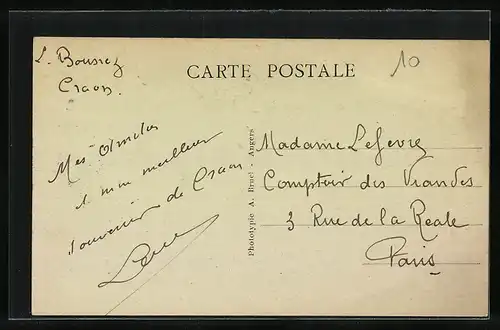 L. Bousrez
Craon.
CARTE POSTALE
10
Mes
& mon meilleur
souvenir de Craon
Phototypie A. Bruel - Angers
Madame Lefevre
Comptoir des Viandes
3 Rue de la Reale
Paris